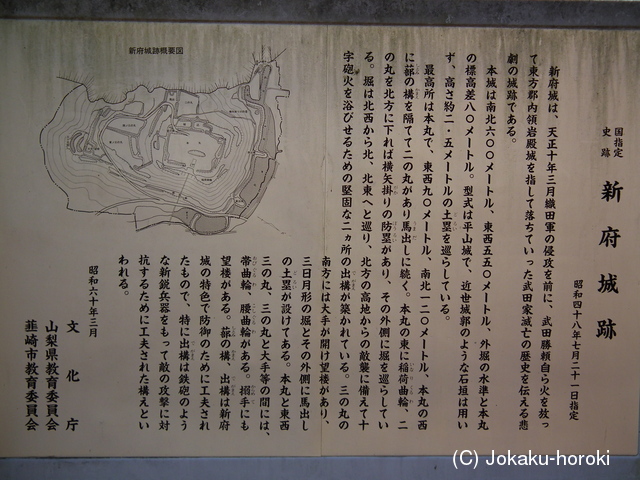 国指定
史跡
新府城跡
昭和四十八年七月二十一日指定
新府城は、天正十年三月織田軍の侵攻を前に、武田勝頼自ら火を放っ
て東方郡内領岩殿城を指して落ちていった武田家滅亡の歴史を伝える悲
劇の城跡である。
本城は南北六〇〇メートル、東西五五〇メートル、外堀の水準と本丸
の標高差八〇メートル。型式は平山城で、近世城郭のような石垣は用い
ず、高さ約二・五メートルの土塁を巡らしている。
最高所は本丸で、東西九〇メートル、南北一二〇メートル、本丸の西
に蔀の構を隔てて二の丸があり馬出しに続く。本丸の東に稲荷曲輪、二
の丸を北方に下れば横矢掛りの防塁があり、その外側に堀を巡らしてい
る。堀は北西から北、北東へと巡り、北方の高地からの敵襲に備えて十
字砲火を浴びせるための堅固な二ヵ所の出構が築かれている。三の丸の
南方には大手が開け望楼があり、
三日月形の堀とその外側に馬出し
の土塁が設けてある。本丸と東西
三の丸、二の丸と大手等の間には、
帯曲輪、腰曲輪がある。搦手にも
望楼がある。蔀の構、出構は新府
城の特色で防御のために工夫され
たもので、特に出構は鉄砲のよう
な新鋭兵器をもって敵の攻撃に対
抗するために工夫された構えとい
われる。
昭和六十年三月
文化庁
山梨県教育委員会
韮崎市教育委員会
新府城跡概要図
(C) Jokaku-horoki